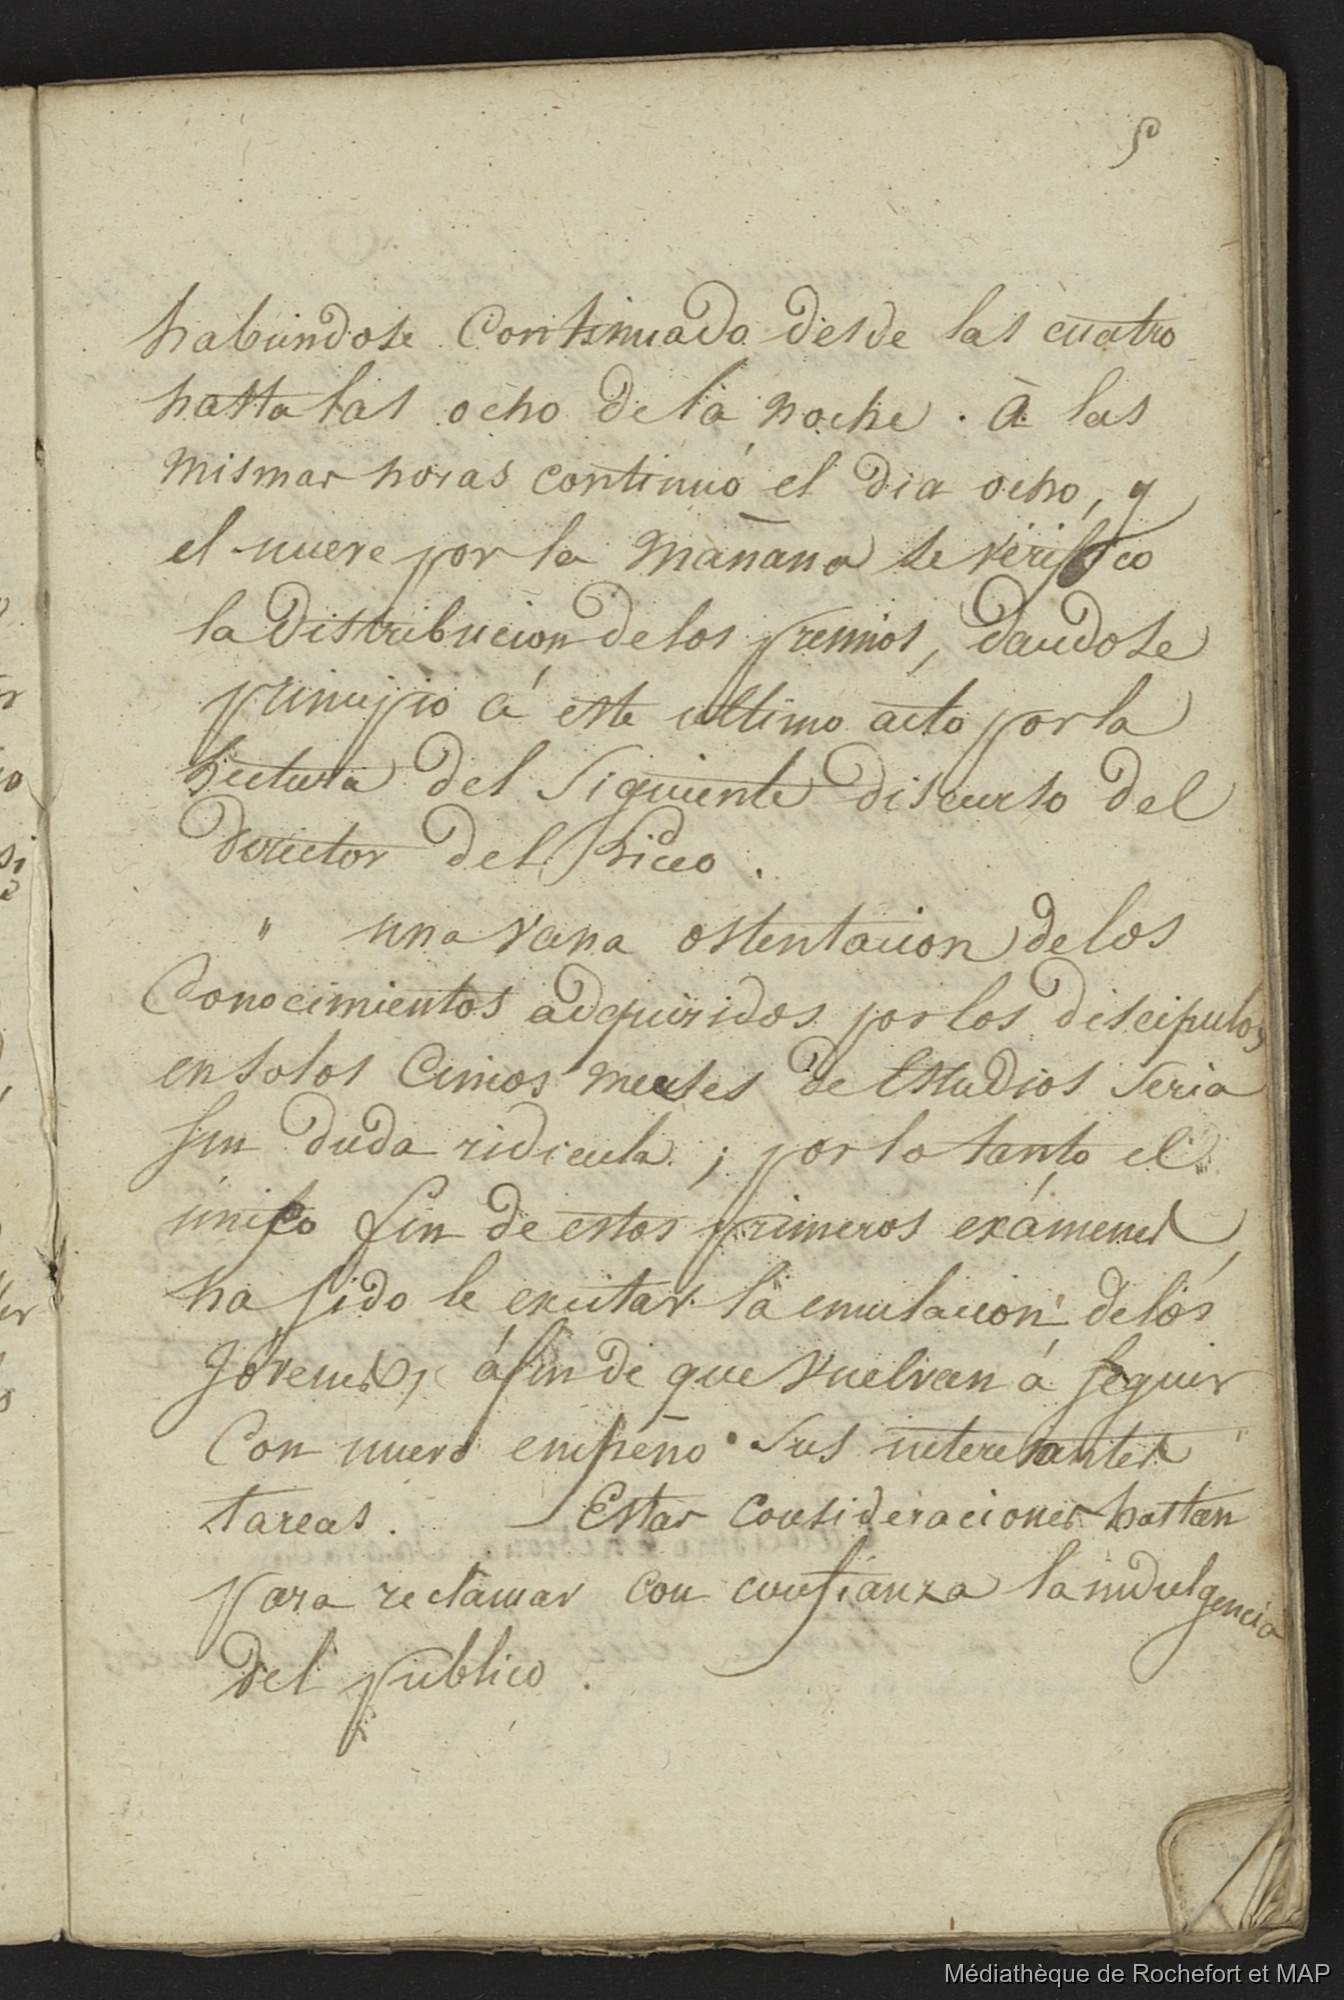 5
habiendose Continuado desde las cuatro
hasta las ocho de la noche. à las
mismas horas continuó el dia ocho, y
el nueve por la mañana se verifico
la Distribucion de los premios, dandose
principio á este ultimo acto por la
Lectura del Siguiente discurso del
Director del Liceo.
" una vana ostentacion de los
Conocimientos adquiridos por los discipulos
en solos Cinco meses de Estudios Seria
sin duda ridicula; por lo tanto el
único fin de estos primeros exámenes,
ha sido le excitar la emulacion de los
Jóvenes, á fin de que vuelvan á seguir
Con nuevo empeño Sus interesantes "
tareas. Estas Consideraciones bastan
para reclamar con confianza la indulgencia
del publico.
Médiathèque de Rochefort et MAP